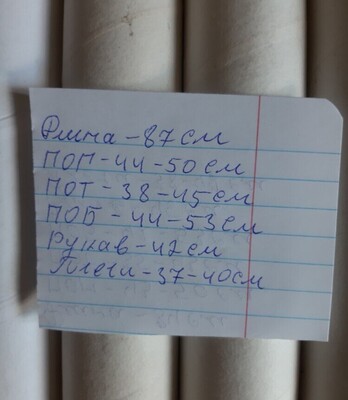 Длина - 87 см
ПОГ - 44 - 50 см
ПОТ - 38 - 45 см
ПОБ - 44 - 53 см
Рукав - 42 см
Плечи - 37 - 40 см